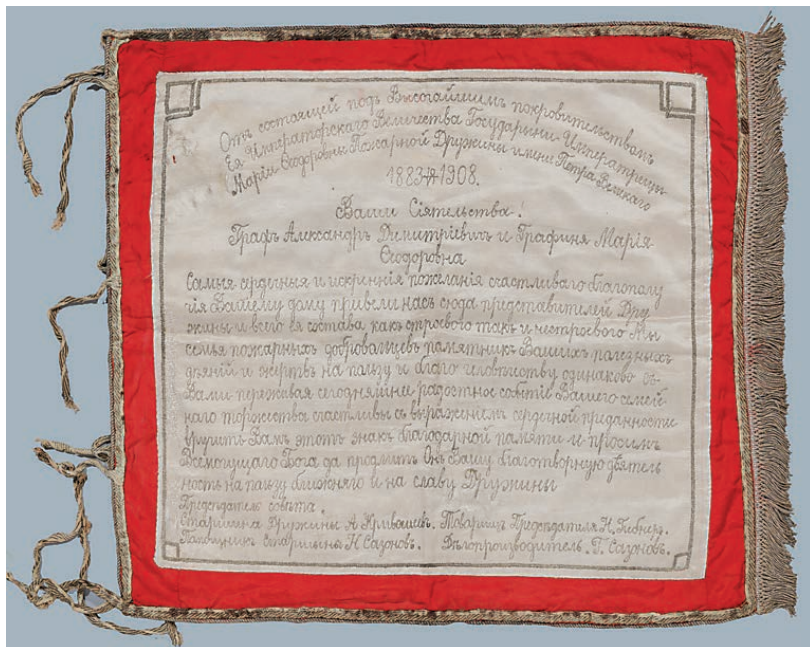 Отъ состоящей подъ Высочайшимъ покровительствомъ
Ея Императорскаго Величества Государыни Императрицы
Маріи Ѳеодоровны Пожарной Дружины имени Петра Великаго
1883 1908.
Ваши Сіятельства!
Графъ Александръ Димитріевичъ и Графиня Марія
Ѳеодоровна
Самыя сердечныя и искреннія пожеланія счастливаго благополу
чія Вашему дому привели насъ сюда представителей Дру
жины и всего ея состава какъ строевого такъ и нестроевого Мы
семья пожарныхъ добровальцевъ памятникъ Вашихъ палезныхъ
дѣяній и жертвъ на пользу и благо человѣчеству одинаково съ
Вами переживая сегодняшнее радостное событіе Вашего семей-
наго торжества счастливы съ выраженіемъ сердечной преданности
вручить Вамъ этотъ знакъ благодарной памяти и просимъ
Всемогущаго Бога да продлитъ Онъ Вашу благотворную дѣятель
ность на пользу ближняго и на славу Дружины
Председатель совѣта.
Старшина Дружины А Кривашевъ. Товарищъ Предсѣдателя Н.
Памощникъ Старшины Н Сазоновъ. Дѣлопроизводитель. Г. Сазоновъ.